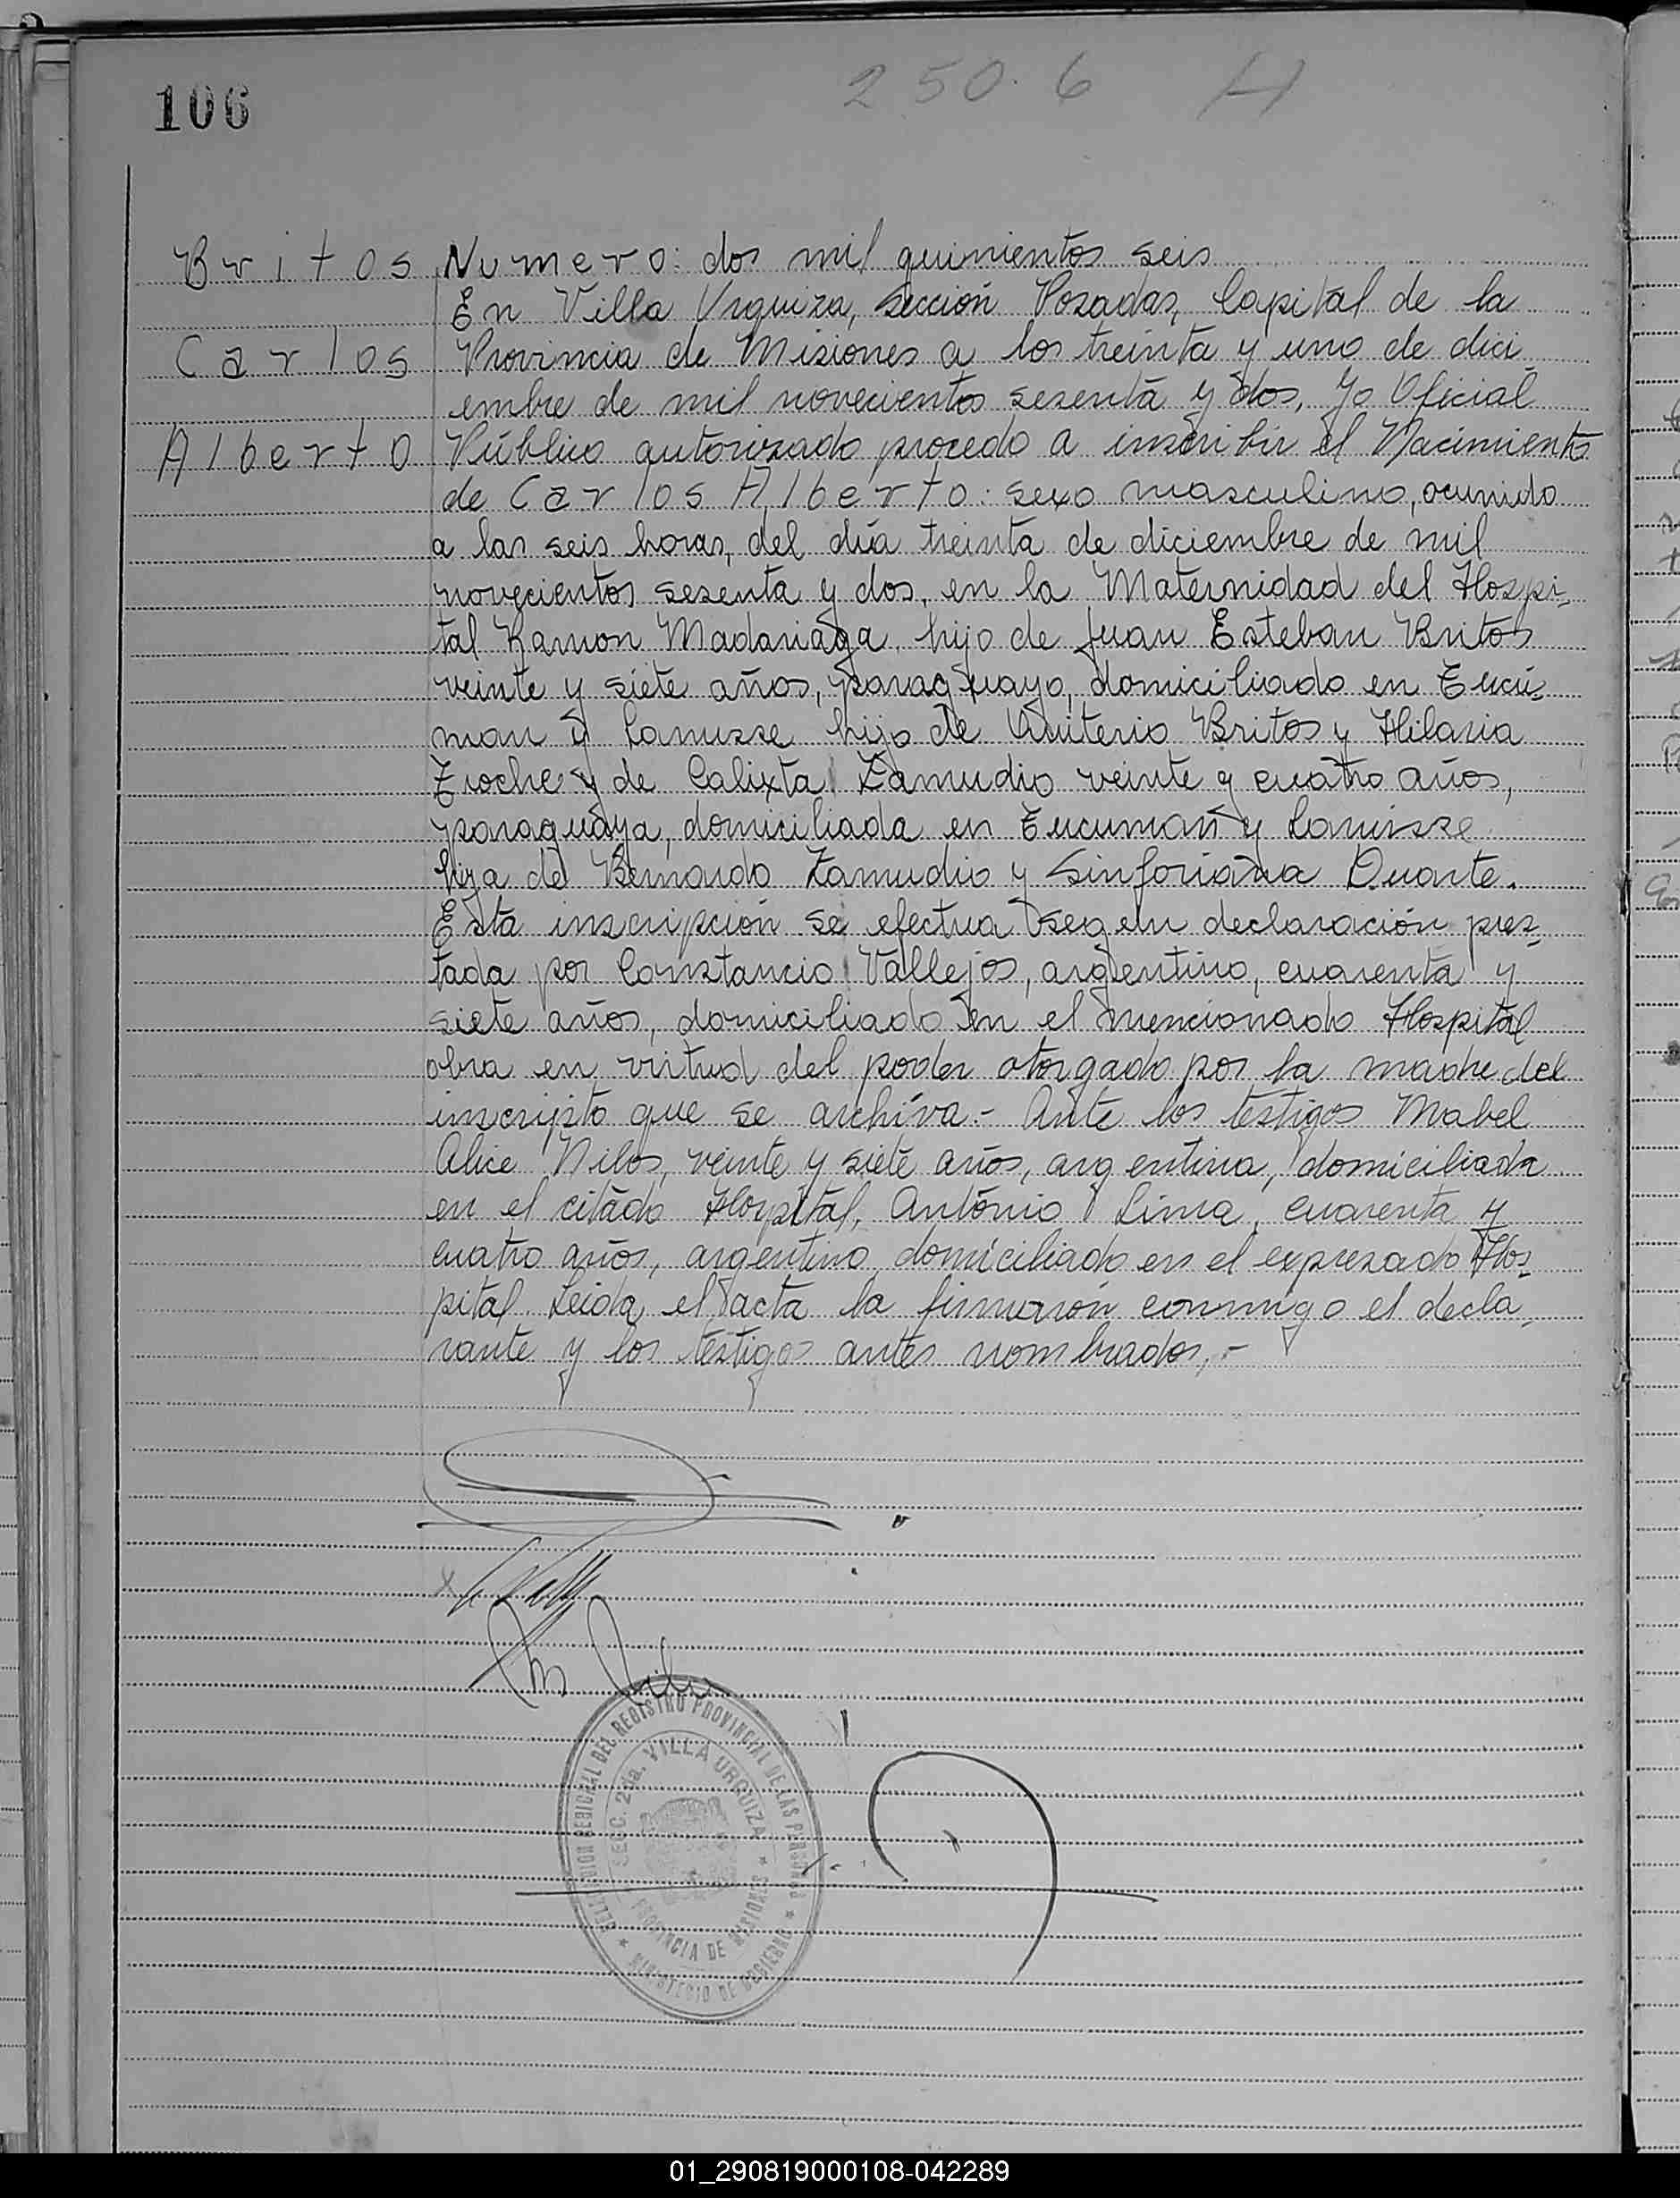 106
2506 H
Britos
Carlos
Alberto
Numero: dos mil quinientos seis
En Villa Urquiza, sección Posadas, Capital de la
Provincia de Misiones a los treinta y uno de dici
embre de mil novecientos sesenta y dos, Yo Oficial
Público autorizado procedo a inscribir el Nacimiento
de Carlos Alberto: sexo masculino, ocurrido
a las seis horas, del día treinta de diciembre de mil
novecientos sesenta y dos, en la Maternidad del Hospi-
tal Ramon Madariaga, hijo de Juan Esteban Britos
veinte y siete años, paraguayo, domiciliado en Tucu-
man y Lanusse hijo de Quiterio Britos y Hilaria
Troche y de Calixta Zamudio veinte y cuatro años,
paraguaya, domiciliada en Tucuman y Lanusse
hija de Bernardo Zamudio y Sinforiana Duarte.
Esta inscripción se efectua segun declaración pres-
tada por Constancio Vallejos, argentino, cuarenta y
siete años, domiciliado en el mencionado Hospital
obra en virtud del poder otorgado por la madre del
inscripto que se archiva.- Ante los testigos Mabel
Alice Nilos, veinte y siete años, argentina, domiciliada
en el citado Hospital, Antonio Lima, cuarenta y
cuatro años, argentino domiciliado en el expresado Hos-
pital Leida el acta la firmaron conmigo el decla-
rante y los testigos antes nombrados,-
DELEGACION SECIONAL DEL REGISTRO PROVINCIAL DE LAS PERSONAS
SECC. 2da. VILLA URQUIZA
PROVINCIA DE MISIONES
MINISTERIO DE GOBIERNO
01_290819000108-042289